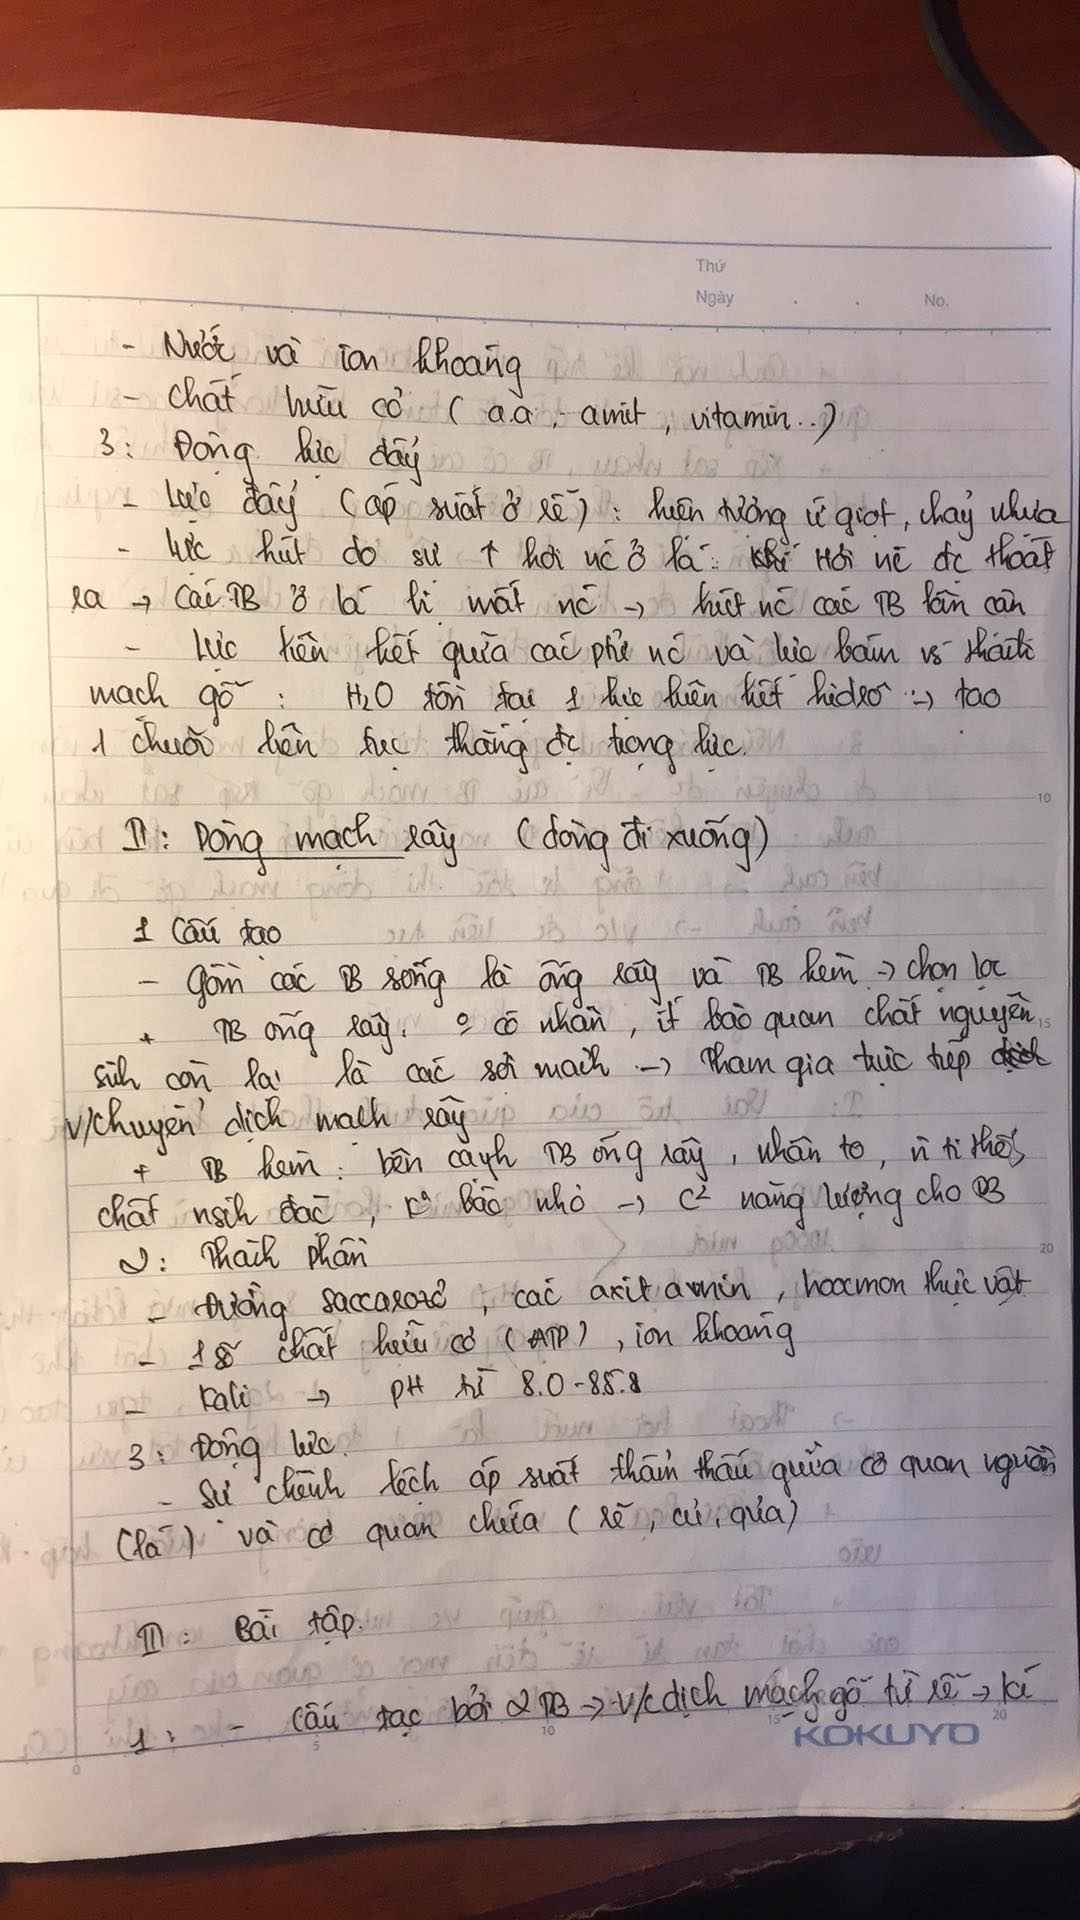 Thứ
Ngày . . No.
- Nước và ion khoáng
- Chất hữu cơ ( a.a, amit, vitamin...)
3: Động lực đẩy
- Lực đẩy (áp suất ở rễ) : hiện tượng ứ giọt, chảy nhựa
- lực hút do sự ↑ hơi nc ở lá: Hơi nc đc thoát
ra → các TB ở lá bị mất nc → hút nc các TB lân cận
- lực liên kết giữa các ptử nc và lực bám vs thành
mạch gỗ : H2O tồn tại 1 lực liên kết hidro → tạo
1 chuỗi liên tục thắng đc trọng lực.
10
II: Dòng mạch rây (dòng đi xuống)
1 Cấu tạo
- Gồm các TB sống là ống rây và TB kèm → chọn lọc
+ TB ống rây: có nhân, ít bào quan chất nguyên
15
sinh còn lại là các sợi mảnh → Tham gia trực tiếp
v/chuyển dịch mạch rây
+ TB kèm: bên cạnh TB ống rây, nhân to, ti thể,
chất nsinh đặc, bào nhỏ → năng lượng cho TB
20
2: Thành phần
- Đường saccarozơ, các axit amin, hoocmon thực vật
- 1 số chất hữu cơ (ATP), ion khoáng
- Kali → pH từ 8.0-8.5.8
3: Động lực.
- Sự chênh lệch áp suất thẩm thấu giữa cơ quan nguồn
(lá) và cơ quan chứa ( rễ, củ, quả)
II: Bài tập.
1: - Cấu tạo bởi 2 TB → v/c dịch mạch gỗ từ rễ → lá
0 5 10 15 20
KOKUYO